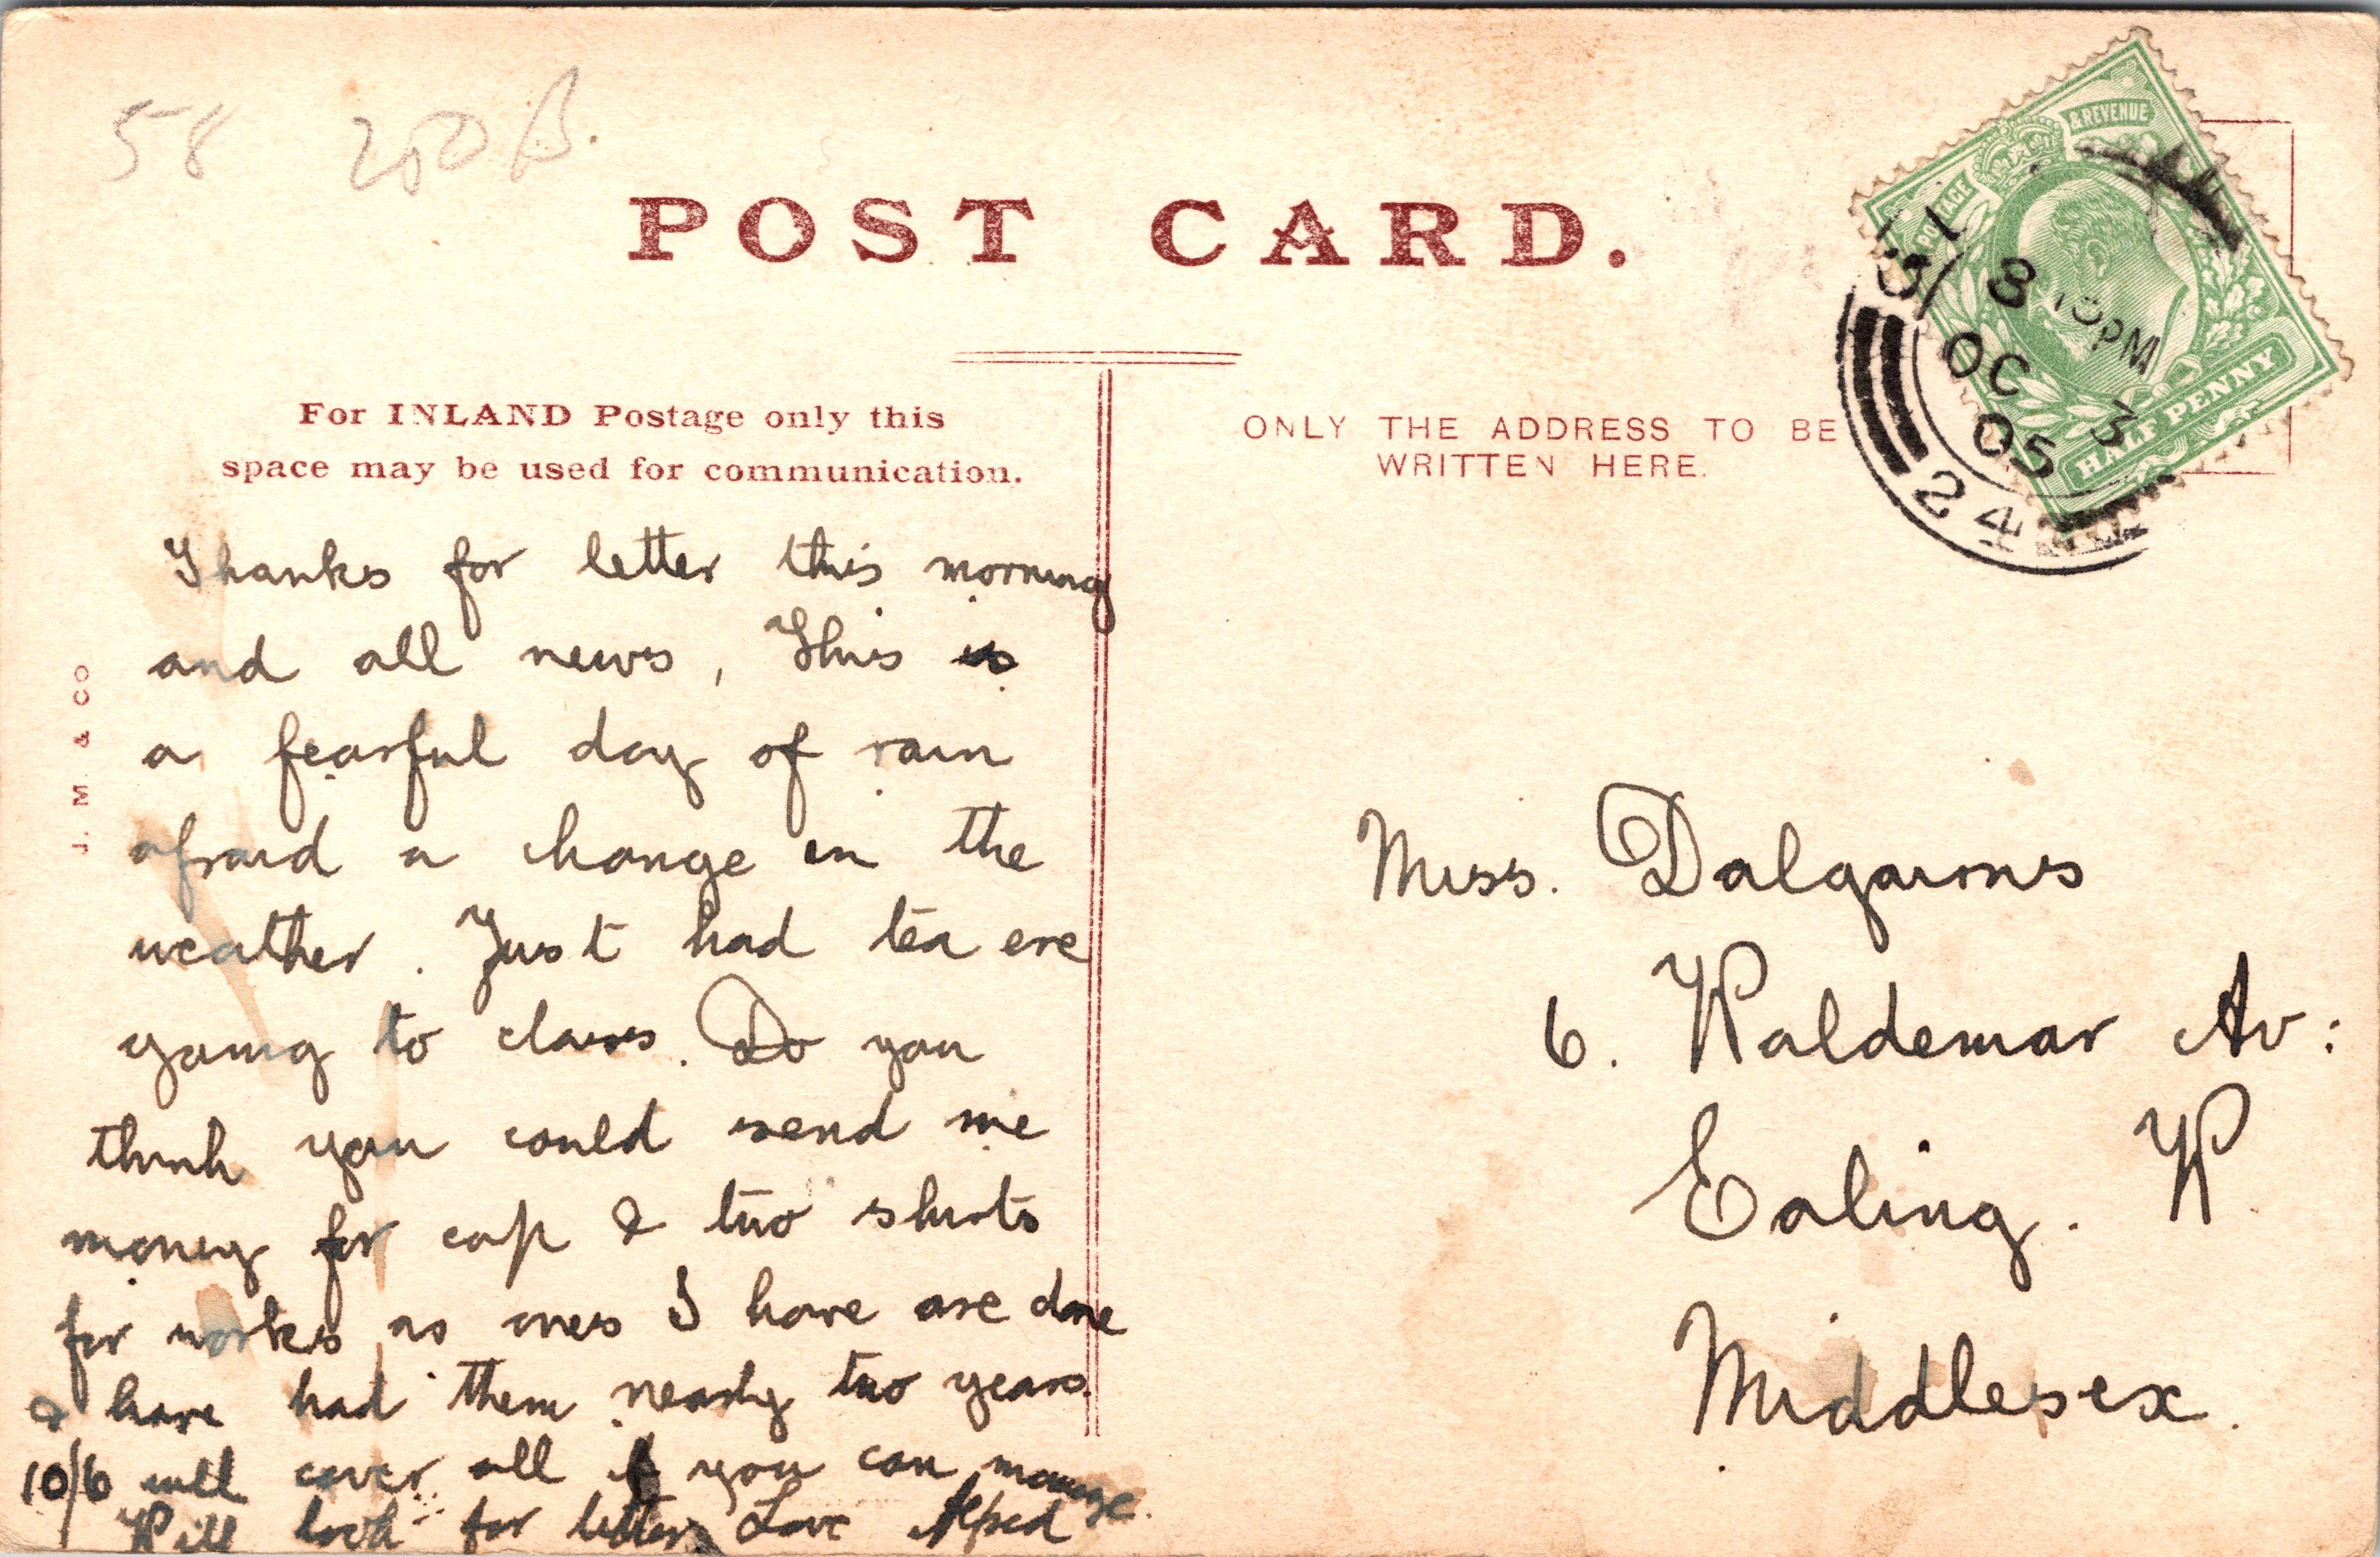 58 200 B.
POST CARD.
POSTAGE & REVENUE
HALF PENNY
8 15 PM
OC 3
05
24
For INLAND Postage only this
space may be used for communication.
ONLY THE ADDRESS TO BE
WRITTEN HERE.
J. M. & CO
Thanks for letter this morning
and all news, This is
a fearful day of rain
afraid a change in the
weather. Just had tea ere
going to class. Do you
think you could send me
money for cap & two shirts
for works as ones I have are done
& have had them nearly two years.
10/6 will cover all if you can manage.
Will look for letter, Love
Miss. Dalgairns
6. Waldemar Av:
Ealing. W
Middlesex.